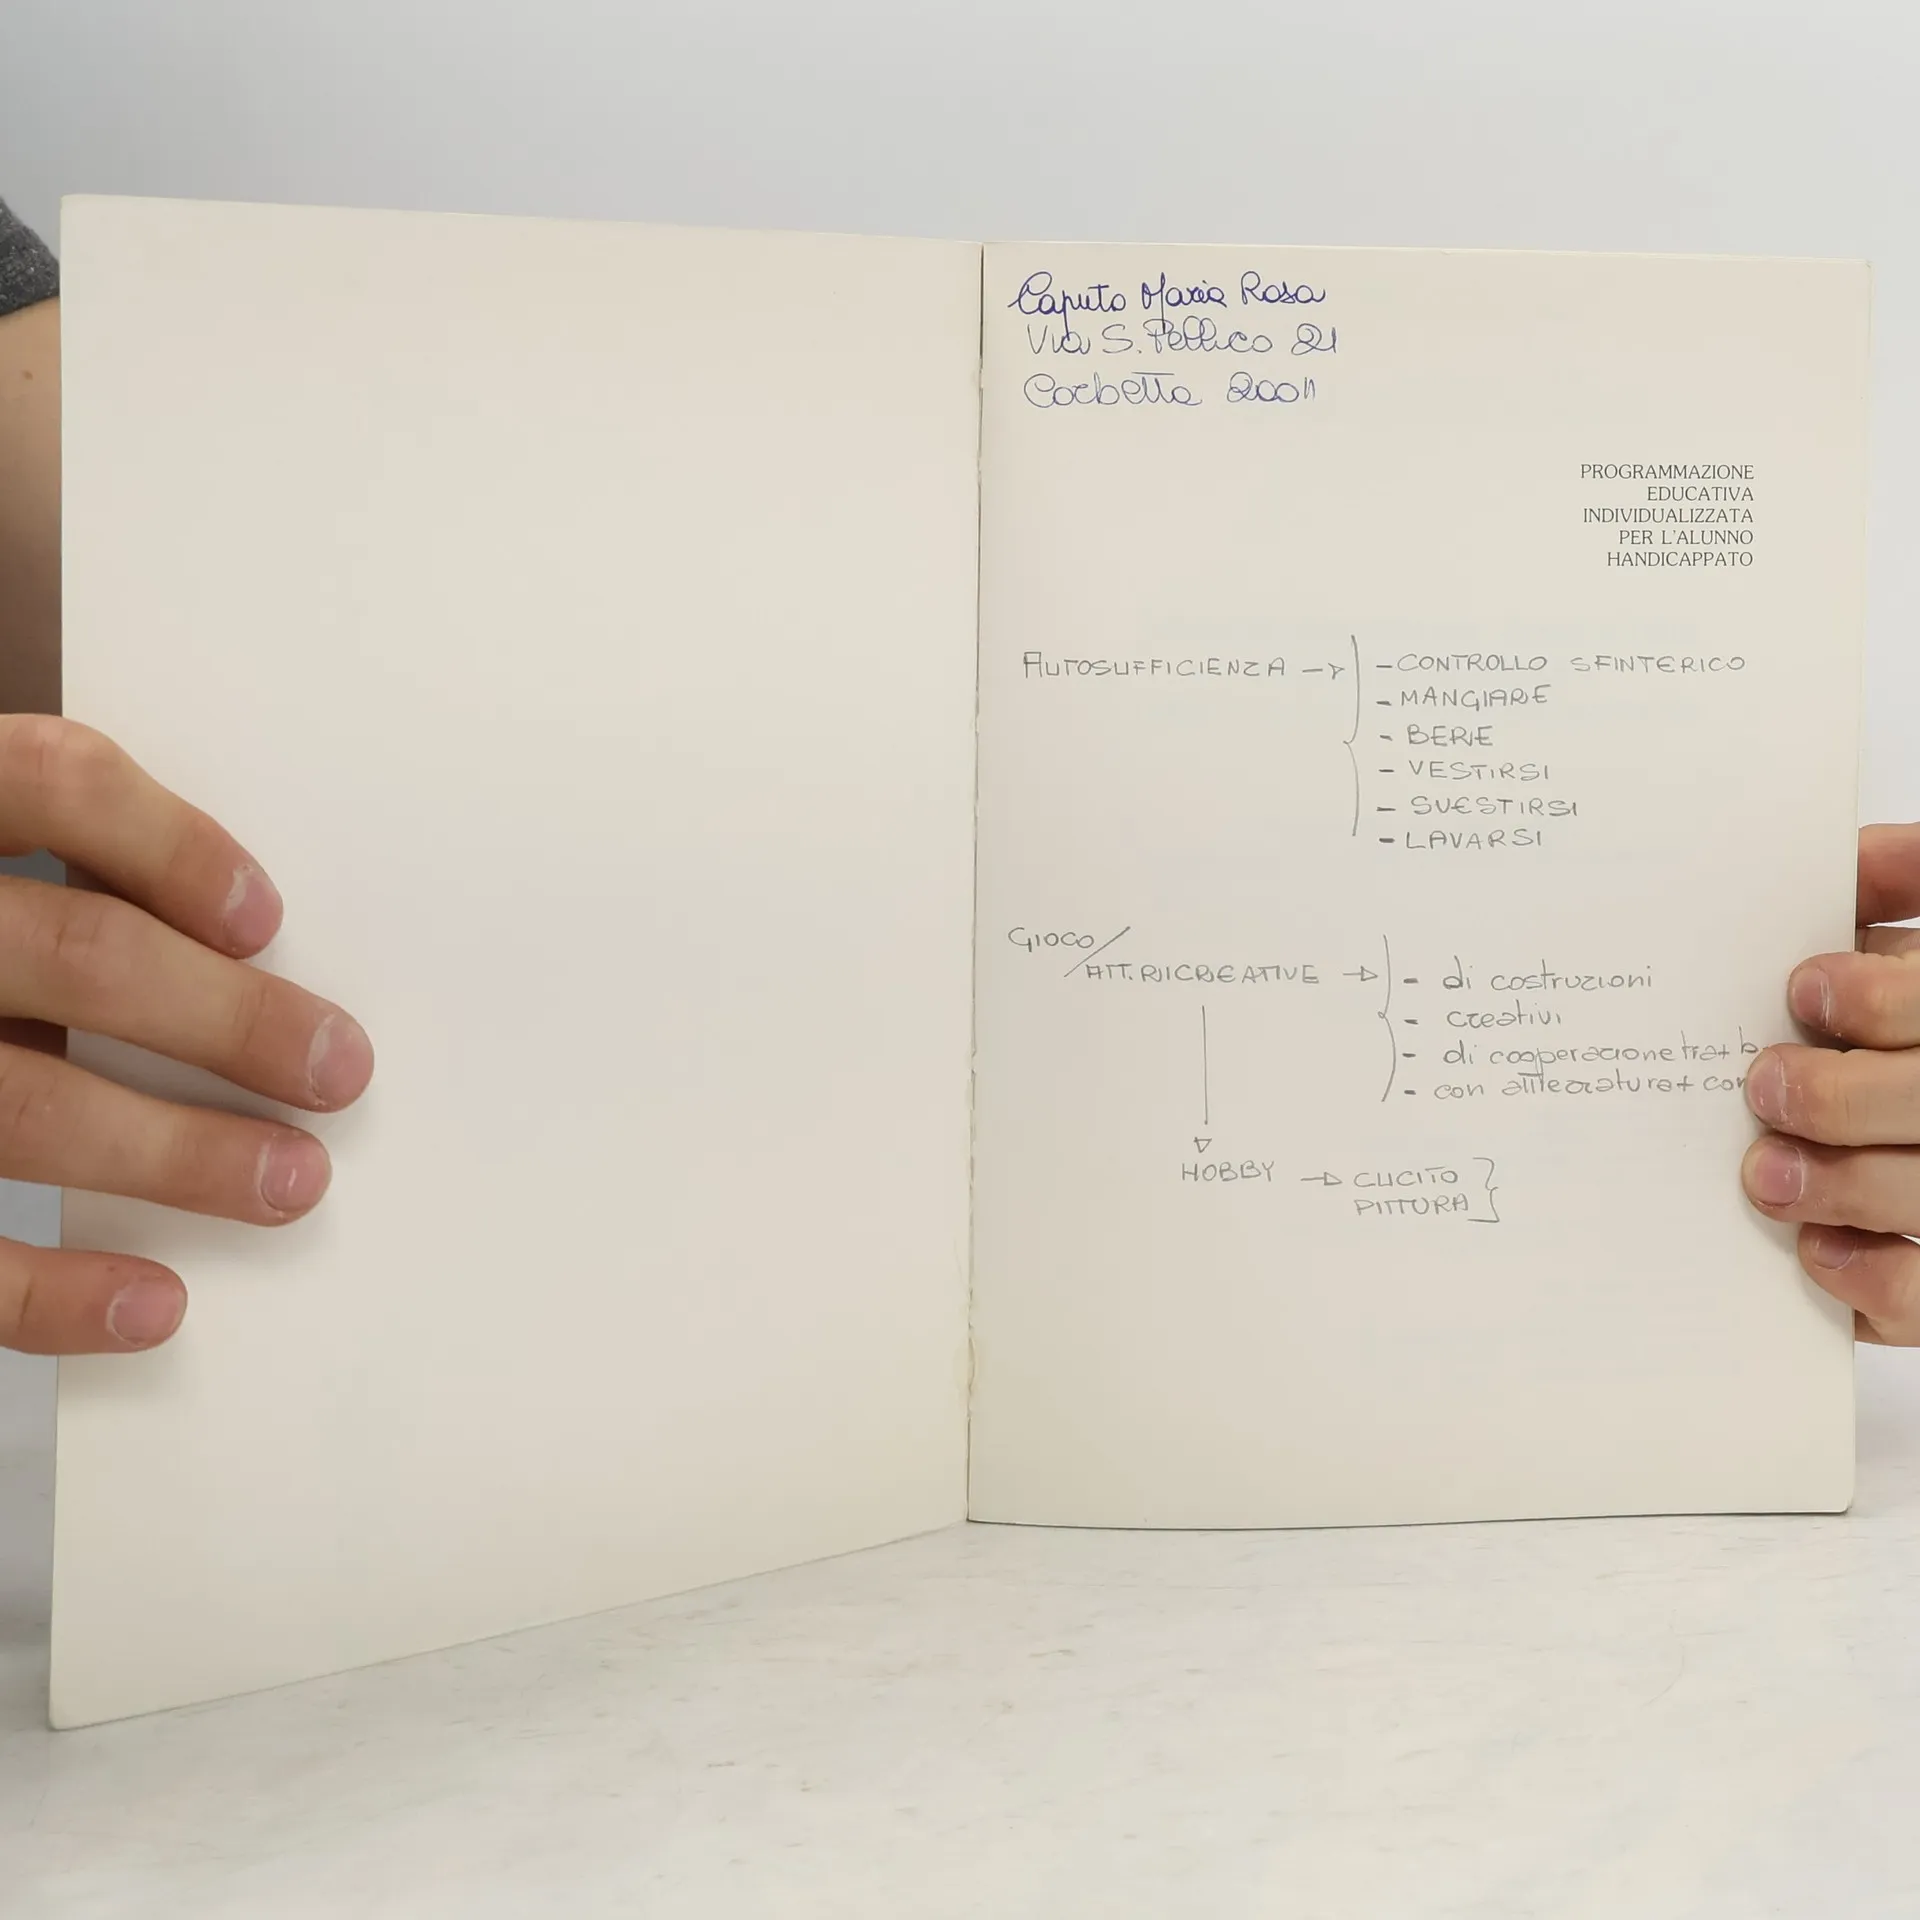 Caputo Maria Rosa
Via S. Pellico 21
Corbetta 20011
PROGRAMMAZIONE
EDUCATIVA
INDIVIDUALIZZATA
PER L'ALUNNO
HANDICAPPATO
AUTOSUFFICIENZA → - CONTROLLO SFINTERICO
- MANGIARE
- BERE
- VESTIRSI
- SVESTIRSI
- LAVARSI
GIOCO/
ATT. RICREATIVE → - di costruzioni
- creativi
- di cooperazione tra + b
- con attrezzatura +
HOBBY → CUCITO
PITTURA